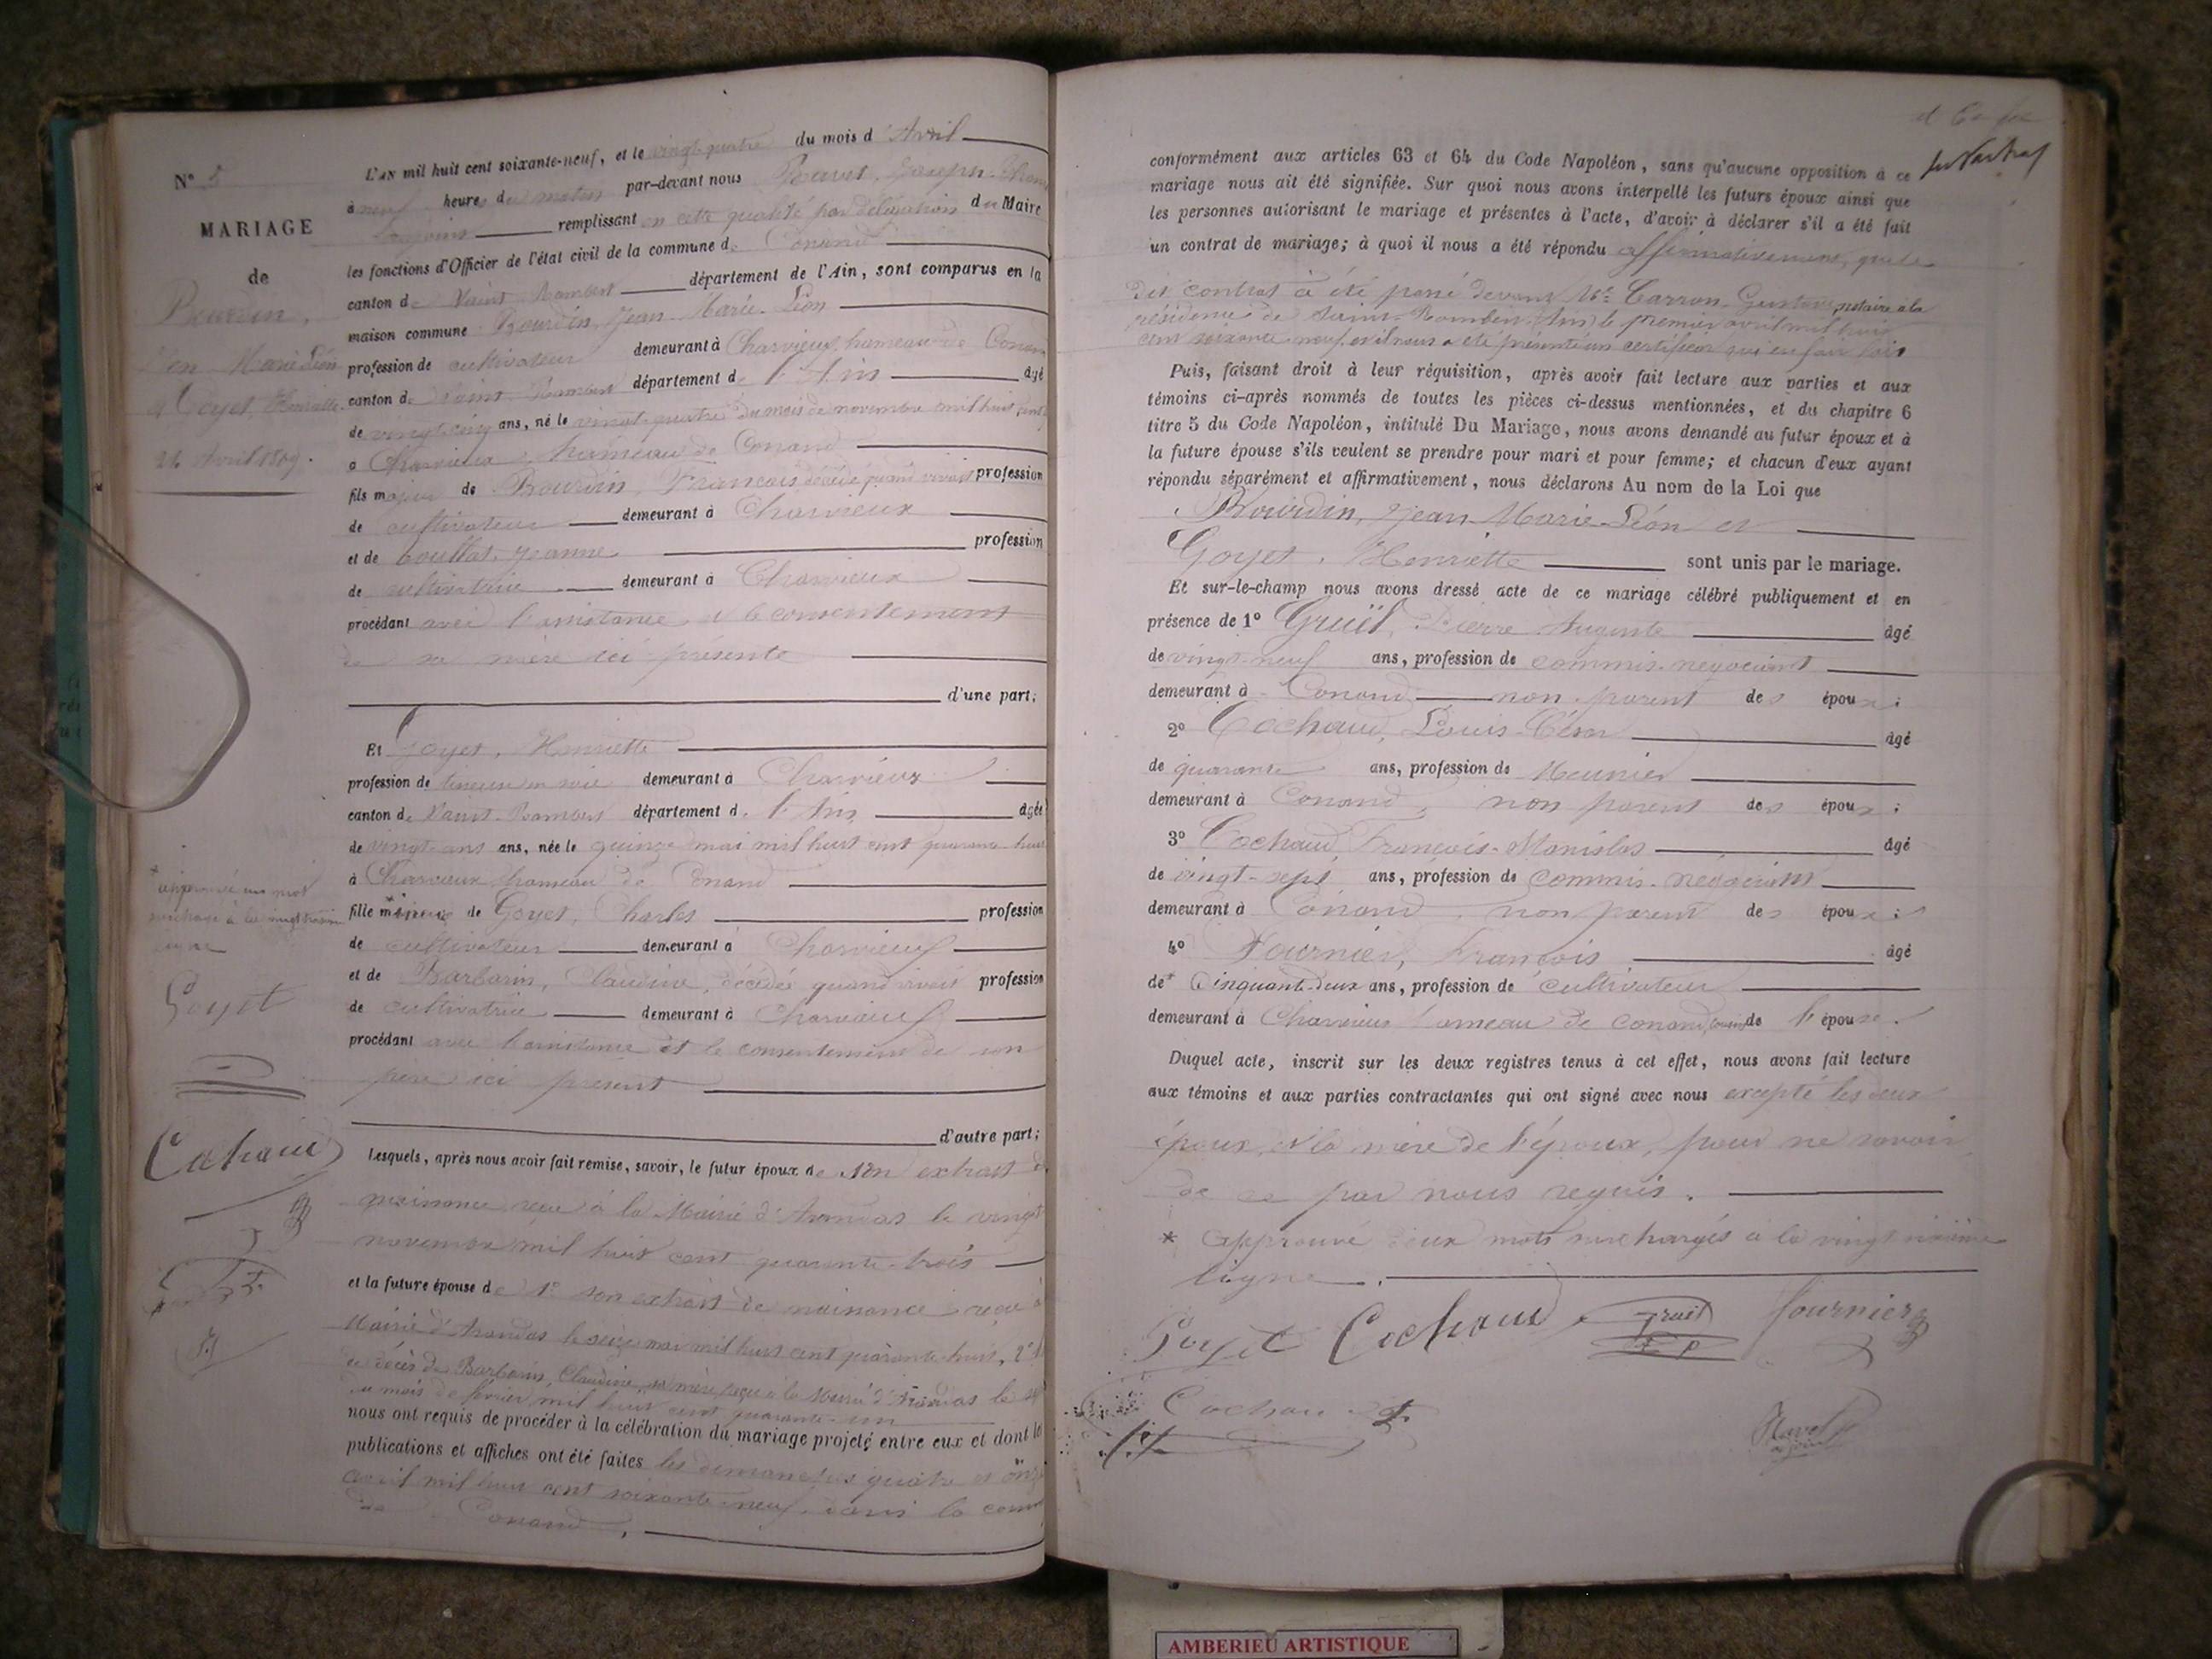 N° 5
MARIAGE
de
Bourdin,
Jean Marie Léon
Goyet, Henriette
24 Avril 1869.
L'AN mil huit cent soixante-neuf, et le vingt-quatre du mois d'Avril
à neuf heures du matin par-devant nous Joseph
remplissant en cette qualité par délégation du Maire
les fonctions d'Officier de l'état civil de la commune de Conand
canton de Saint Rambert département de l'Ain, sont comparus en la
maison commune Bourdin, Jean-Marie-Léon
profession de cultivateur demeurant à Charvieux, hameau de Conand
canton de Saint-Rambert département de l'Ain âgé
de vingt-cinq ans, né le vingt-quatre du mois de novembre mil huit cent
à Charvieux, hameau de Conand
fils majeur de Bourdin, François, décédé quand vivait profession
de cultivateur demeurant à Charvieux
et de Jeanne profession
de cultivatrice demeurant à Charvieux
procédant avec l'assistance et le consentement
de sa mère ici présente
d'une part;
Et Goyet, Henriette
profession de tisseuse en soie demeurant à Charvieux
canton de Saint-Rambert département de l'Ain âgée
de vingt ans ans, née le quinze mai mil huit cent quarante huit
à Charvieux hameau de Conand
fille *mineure de Goyet, Charles profession
de cultivateur demeurant à Charvieux
et de Barbarin, Claudine, décédée quand vivait profession
de cultivatrice demeurant à Charvieux
procédant avec l'assistance et le consentement de son
père ici présent
d'autre part;
Lesquels, après nous avoir fait remise, savoir, le futur époux de son extrait de
naissance reçu à la Mairie d'Arandas le vingt
novembre mil huit cent quarante-trois
et la future épouse de 1° son extrait de naissance reçu à
Mairie d'Arandas le seize mai mil huit cent quarante-huit, 2°
de décès de Barbarin, Claudine, sa mère, reçu à la Mairie d'Arandas le
du mois de février mil huit cent
nous ont requis de procéder à la célébration du mariage projeté entre eux et dont les
publications et affiches ont été faites les dimanches quatre et onze
avril mil huit cent soixante-neuf, dans la commune
de Conand,
*approuvé un mot
surchargé à la
ligne
Goyet
Cochaud
conformément aux articles 63 et 64 du Code Napoléon, sans qu'aucune opposition à ce
mariage nous ait été signifiée. Sur quoi nous avons interpellé les futurs époux ainsi que
les personnes autorisant le mariage et présentes à l'acte, d'avoir à déclarer s'il a été fait
un contrat de mariage; à quoi il nous a été répondu affirmativement, que le
dit contrat a été passé devant Me Carron, Gustave, notaire à la
résidence de Saint-Rambert (Ain) le premier avril mil huit
cent soixante-neuf, et il nous a été présenté un certificat qui en fait foi
Puis, faisant droit à leur réquisition, après avoir fait lecture aux parties et aux
témoins ci-après nommés de toutes les pièces ci-dessus mentionnées, et du chapitre 6
titre 5 du Code Napoléon, intitulé Du Mariage, nous avons demandé au futur époux et à
la future épouse s'ils veulent se prendre pour mari et pour femme; et chacun d'eux ayant
répondu séparément et affirmativement, nous déclarons Au nom de la Loi que
Bourdin, Jean-Marie-Léon et
Goyet, Henriette sont unis par le mariage.
Et sur-le-champ nous avons dressé acte de ce mariage célébré publiquement et en
présence de 1° Gruël, Pierre Auguste âgé
de vingt-neuf ans, profession de commis-négociant
demeurant à Conand non parent des époux;
2° Cochaud, Louis-César âgé
de quarante ans, profession de Meunier
demeurant à Conand, non parent des époux;
3° Cochaud, François-Stanislas âgé
de vingt-sept ans, profession de commis-négociant
demeurant à Conand, non parent des époux;
4° Fournier, François âgé
de* Cinquante-deux ans, profession de cultivateur
demeurant à Charvieux hameau de Conand, cousin de l'épouse.
Duquel acte, inscrit sur les deux registres tenus à cet effet, nous avons fait lecture
aux témoins et aux parties contractantes qui ont signé avec nous excepté les deux
époux, et la mère de l'époux, pour ne savoir
de ce par nous requis.
* approuvé deux mots surchargés à la vingt sixième
ligne.
Goyet Cochaud Gruël fournier
Cochaud
Ravet
adjoint
AMBERIEU ARTISTIQUE